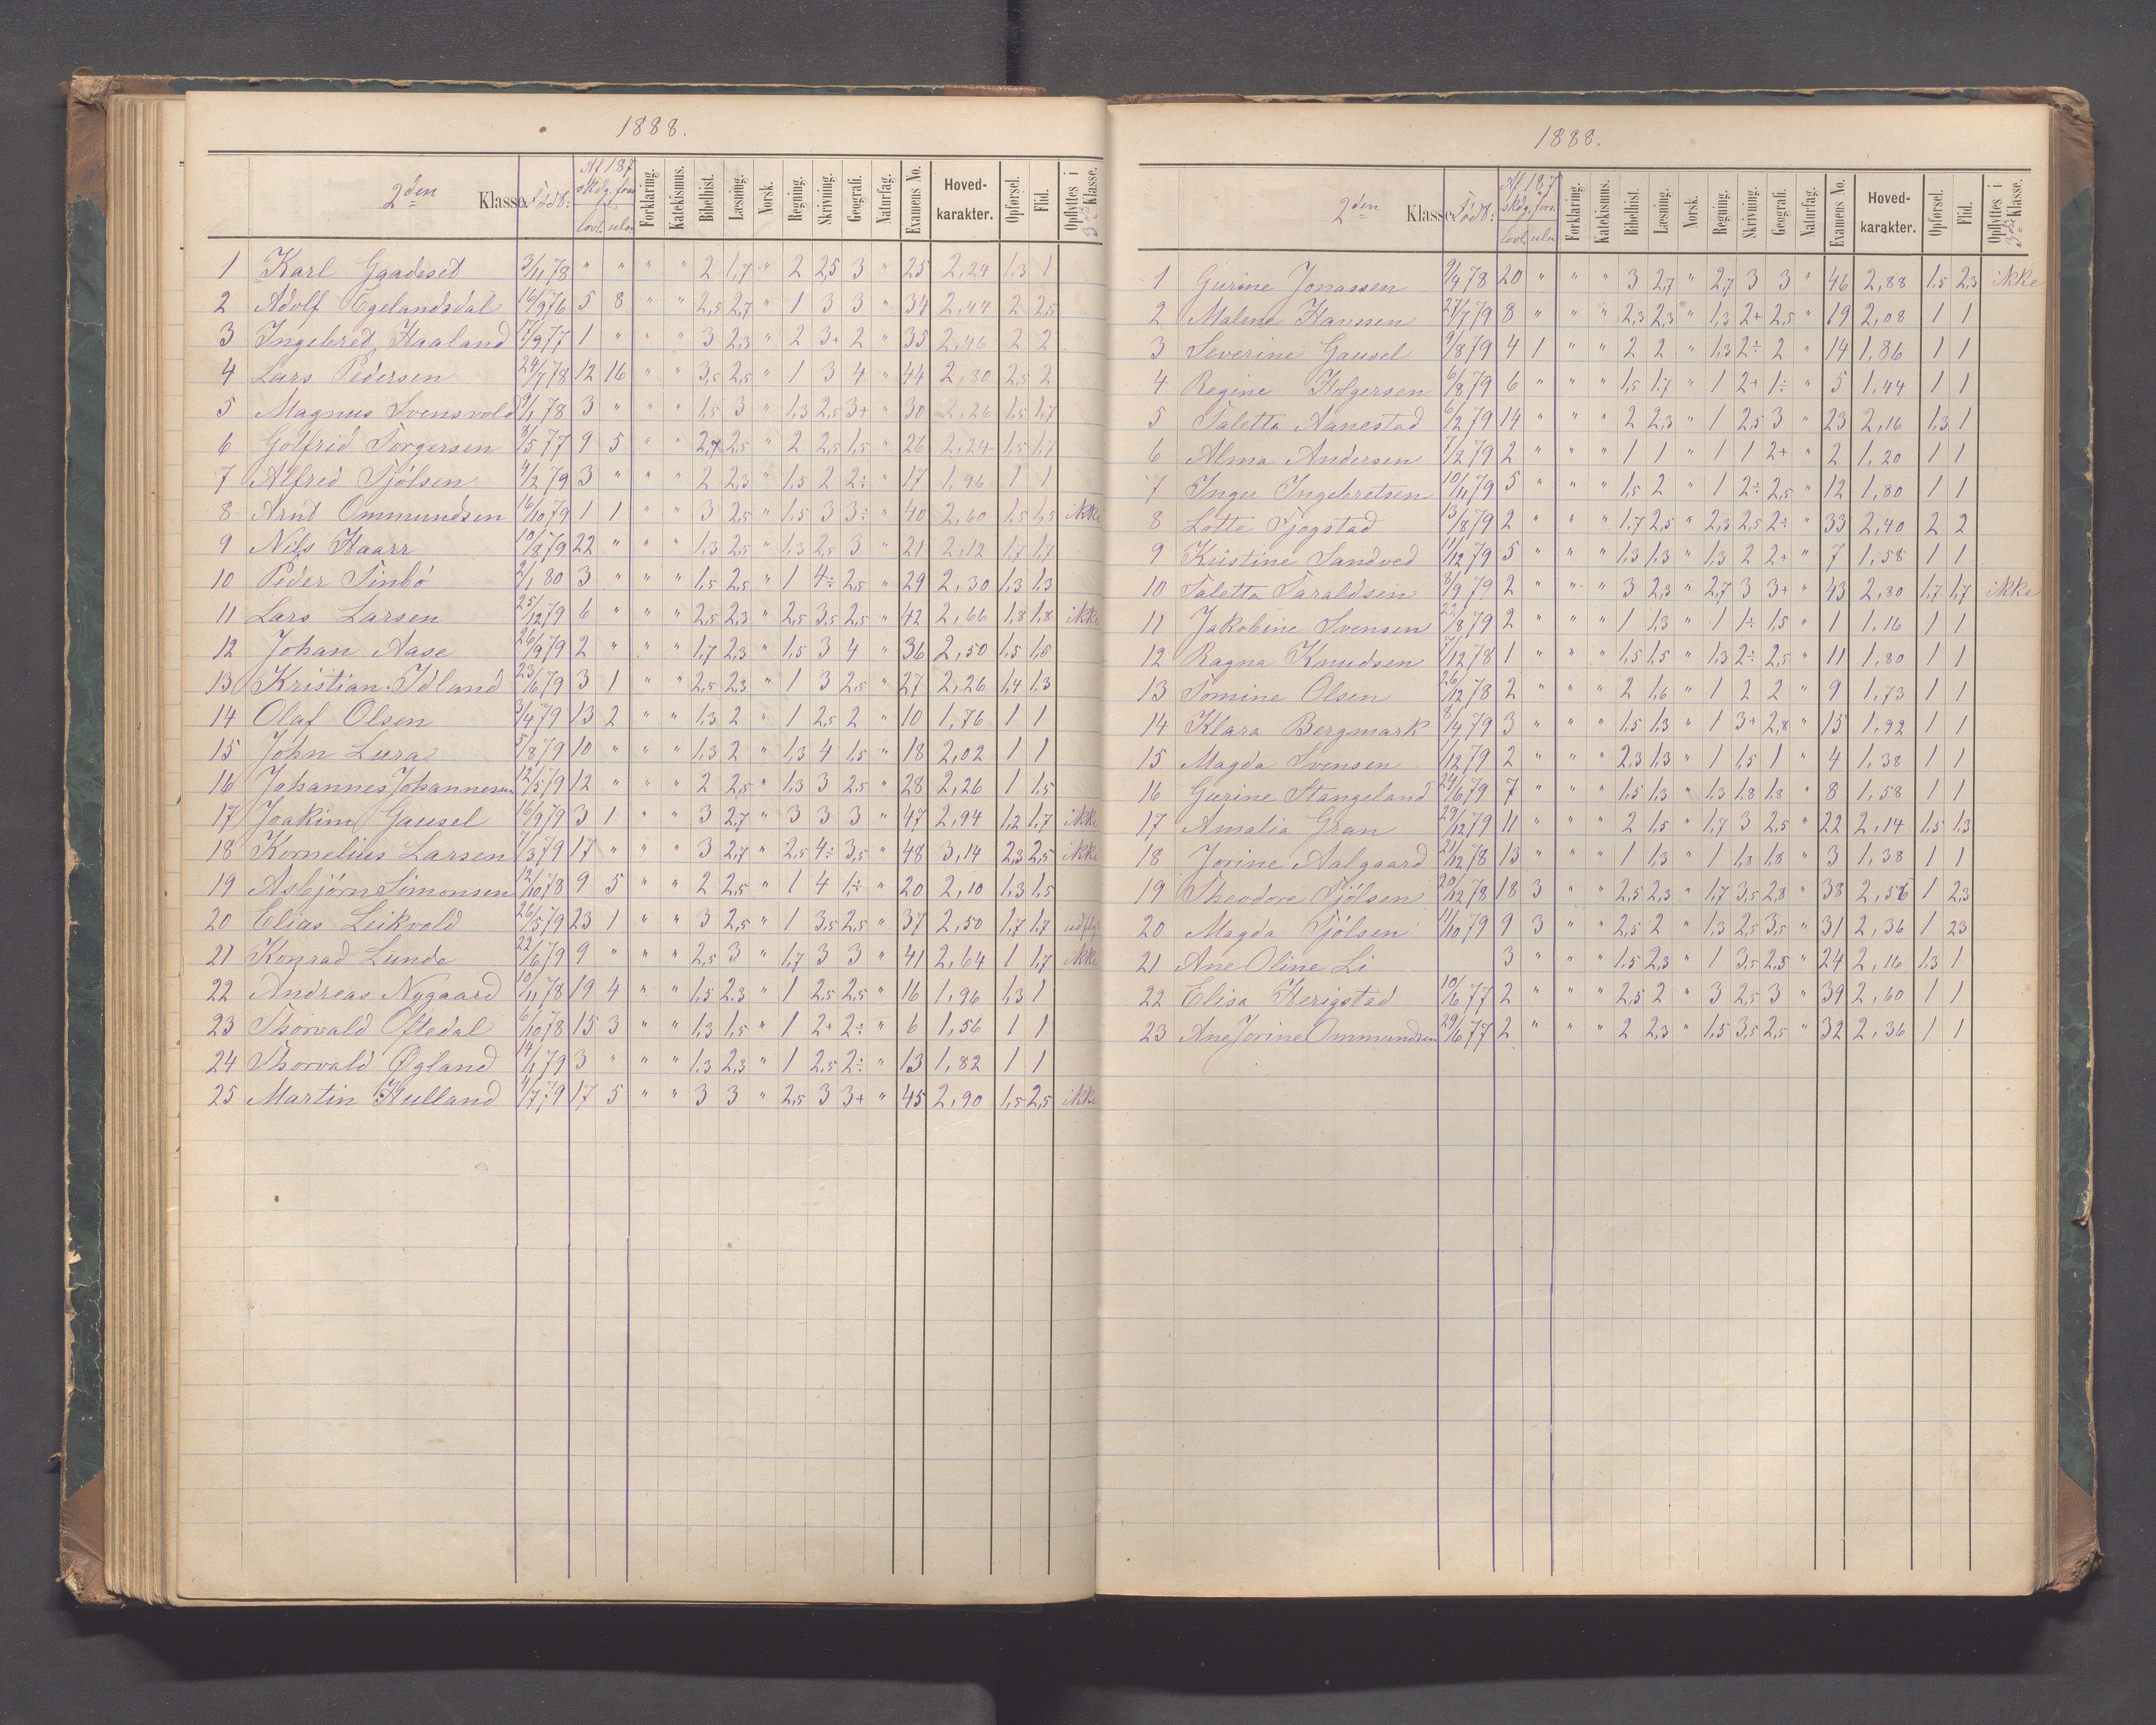 1888.
2den Klasse. Født: Af 187 skdg. fors. lovl. ulov. Forklaring. Katekismus. Bibelhist. Læsning. Norsk. Regning. Skrivning. Geografi. Naturfag. Examens No. Hoved-karakter. Opførsel. Flid. Opflyttes i 3die Klasse.
1 Karl Gaadeset 3/11 78 " " " " 2 1,7 " 2 2,5 3 " 25 2,24 1,3 1
2 Adolf Egelandsdal 16/9 76 5 8 " " 2,5 2,7 " 1 3 3 " 34 2,44 2 2,5
3 Ingebred Haaland 17/9 77 1 " " " 3 2,3 " 2 3+ 2 " 35 2,46 2 2
4 Lars Pedersen 24/7 78 12 16 " " 3,5 2,5 " 1 3 4 " 44 2,80 2,5 2
5 Magnus Svensvold 9/1 78 3 " " " 1,5 3 " 1,3 2,5 3+ " 30 2,26 1,5 1,7
6 Golfrid Torgersen 8/5 77 9 5 " " 2,7 2,5 " 2 2,5 1,5 " 26 2,24 1,5 1,7
7 Alfred Tjólsen 4/2 79 3 " " " 2 2,3 " 1,5 2 2÷ " 17 1,96 1 1
8 Arnt Ommundsen 16/10 79 1 1 " " 3 2,5 " 1,5 3 3÷ " 40 2,60 1,5 1,5 ikke
9 Nils Haarr 10/8 79 22 " " " 1,3 2,5 " 1,3 2,5 3 " 21 2,12 1,7 1,7
10 Peder Tinbó 2/1 80 3 " " " 1,5 2,5 " 1 4÷ 2,5 " 29 2,30 1,3 1,3
11 Lars Larsen 25/12 79 6 " " " 2,5 2,3 " 2,5 3,5 2,5 " 42 2,66 1,8 1,8 ikke
12 Johan Aase 26/9 79 2 " " " 1,7 2,3 " 1,5 3 4 " 36 2,50 1,5 1,5
13 Kristian Idland 23/6 79 3 1 " " 2,5 2,3 " 1 3 2,5 " 27 2,26 1,4 1,3
14 Olaf Olsen 3/4 79 13 2 " " 1,3 2 " 1 2,5 2 " 10 1,76 1 1
15 John Lura 5/8 79 10 " " " 1,3 2 " 1,3 4 1,5 " 18 2,02 1 1
16 Johannes Johannesen 12/5 79 12 " " " 2 2,5 " 1,3 3 2,5 " 28 2,26 1 1,5
17 Joakim Gausel 16/9 79 3 1 " " 3 2,7 " 3 3 3 " 47 2,94 1,2 1,7 ikke
18 Kornelius Larsen 7/3 79 17 " " " 3 2,7 " 2,5 4÷ 3,5 " 48 3,14 2,3 2,5 ikke
19 Asbjørn Simonsen 12/10 78 9 5 " " 2 2,5 " 1 4 1÷ " 20 2,10 1,3 1,5
20 Elias Leikvold 26/5 79 23 1 " " 3 2,5 " 1 3,5 2,5 " 37 2,50 1,7 1,7 udflyt
21 Konrad Lunde 22/6 79 9 " " " 2,5 3 " 1,7 3 3 " 41 2,64 1 1,7 ikke
22 Andreas Nygaard 10/11 78 19 4 " " 1,5 2,3 " 1 2,5 2,5 " 16 1,96 1,3 1
23 Thorvald Oftedal 6/10 78 15 3 " " 1,3 1,5 " 1 2+ 2÷ " 6 1,56 1 1
24 Thorvald Øgland 14/1 79 3 " " " 1,3 2,3 " 1 2,5 2÷ " 13 1,82 1 1
25 Martin Hulland 4/7 79 17 5 " " 3 3 " 2,5 3 3+ " 45 2,90 1,5 2,5 ikke
1888.
2den Klasse. Født: Af 187 skdg. fors. lovl. ulov. Forklaring. Katekismus. Bibelhist. Læsning. Norsk. Regning. Skrivning. Geografi. Naturfag. Examens No. Hoved-karakter. Opførsel. Flid. Opflyttes i 3die Klasse.
1 Gurine Jonassen 9/4 78 20 " " " 3 2,7 " 2,7 3 3 " 46 2,88 1,5 2,3 ikke
2 Malene Hanssen 27/7 79 8 " " " 2,3 2,3 " 1,3 2+ 2,5 " 19 2,08 1 1
3 Severine Gausel 9/8 79 4 1 " " 2 2 " 1,3 2÷ 2 " 14 1,86 1 1
4 Regine Holgersen 6/8 79 6 " " " 1,5 1,7 " 1 2+ 1÷ " 5 1,44 1 1
5 Taletta Aanestad 6/2 79 14 " " " 2 2,3 " 1 2,5 3 " 23 2,16 1,3 1
6 Alma Andersen 7/2 79 2 " " " 1 1 " 1 1 2+ " 2 1,20 1 1
7 Inger Ingebretsen 10/11 79 5 " " " 1,5 2 " 1 2÷ 2,5 " 12 1,80 1 1
8 Lotte Tjogstad 13/8 79 2 " " " 1,7 2,5 " 2,3 2,5 2÷ " 33 2,40 2 2
9 Kristine Sandved 11/12 79 5 " " " 1,3 1,3 " 1,3 2 2+ " 7 1,58 1 1
10 Taletta Taraldsen 8/9 79 2 " " " 3 2,3 " 2,7 3 3+ " 43 2,80 1,7 1,7 ikke
11 Jakobine Svensen 22/8 79 2 " " " 1 1,3 " 1 1÷ 1,5 " 1 1,16 1 1
12 Ragna Knudsen 7/12 78 1 " " " 1,5 1,5 " 1,3 2÷ 2,5 " 11 1,80 1 1
13 Tomine Olsen 26/12 78 2 " " " 2 1,6 " 1 2 2 " 9 1,73 1 1
14 Klara Bergmark 8/9 79 3 " " " 1,5 1,3 " 1 3+ 2,8 " 15 1,92 1 1
15 Magda Svensen 1/12 79 2 " " " 2,3 1,3 " 1 1,5 1 " 4 1,38 1 1
16 Gurine Stangeland 24/6 79 7 " " " 1,5 1,3 " 1,3 1,8 1,8 " 8 1,58 1 1
17 Amalia Gran 29/12 79 11 " " " 2 1,5 " 1,7 3 2,5 " 22 2,14 1,5 1,3
18 Jorine Aalgaard 21/12 78 13 " " " 1 1,3 " 1 1,3 1,8 " 3 1,38 1 1
19 Theodore Tjólsen 20/12 78 18 3 " " 2,5 2,3 " 1,7 3,5 2,8 " 38 2,56 1 2,3
20 Magda Tjólsen 11/10 79 9 3 " " 2,5 2 " 1,3 2,5 3,5 " 31 2,36 1 23
21 Ane Oline Li 3 " " " 1,5 2,3 " 1 3,5 2,5 " 24 2,16 1,3 1
22 Elisa Herigstad 10/6 77 2 " " " 2,5 2 " 3 2,5 3 " 39 2,60 1 1
23 Ane Jorine Ommundsen 29/6 77 2 " " " 2 2,3 " 1,5 3,5 2,5 " 32 2,36 1 1